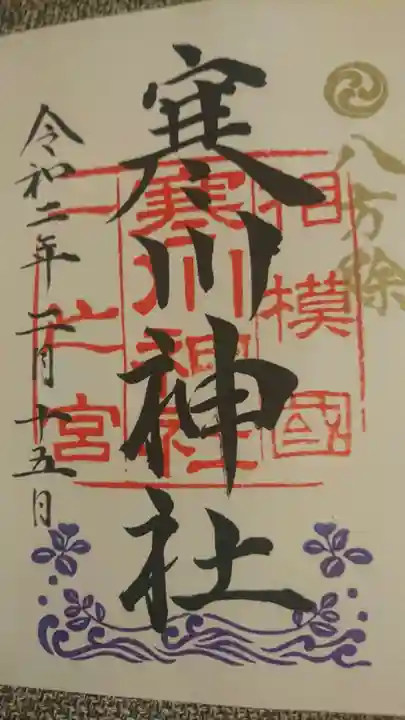 八方除
寒川神社
相模國
寒川神社
一之宮
令和二年二月十五日